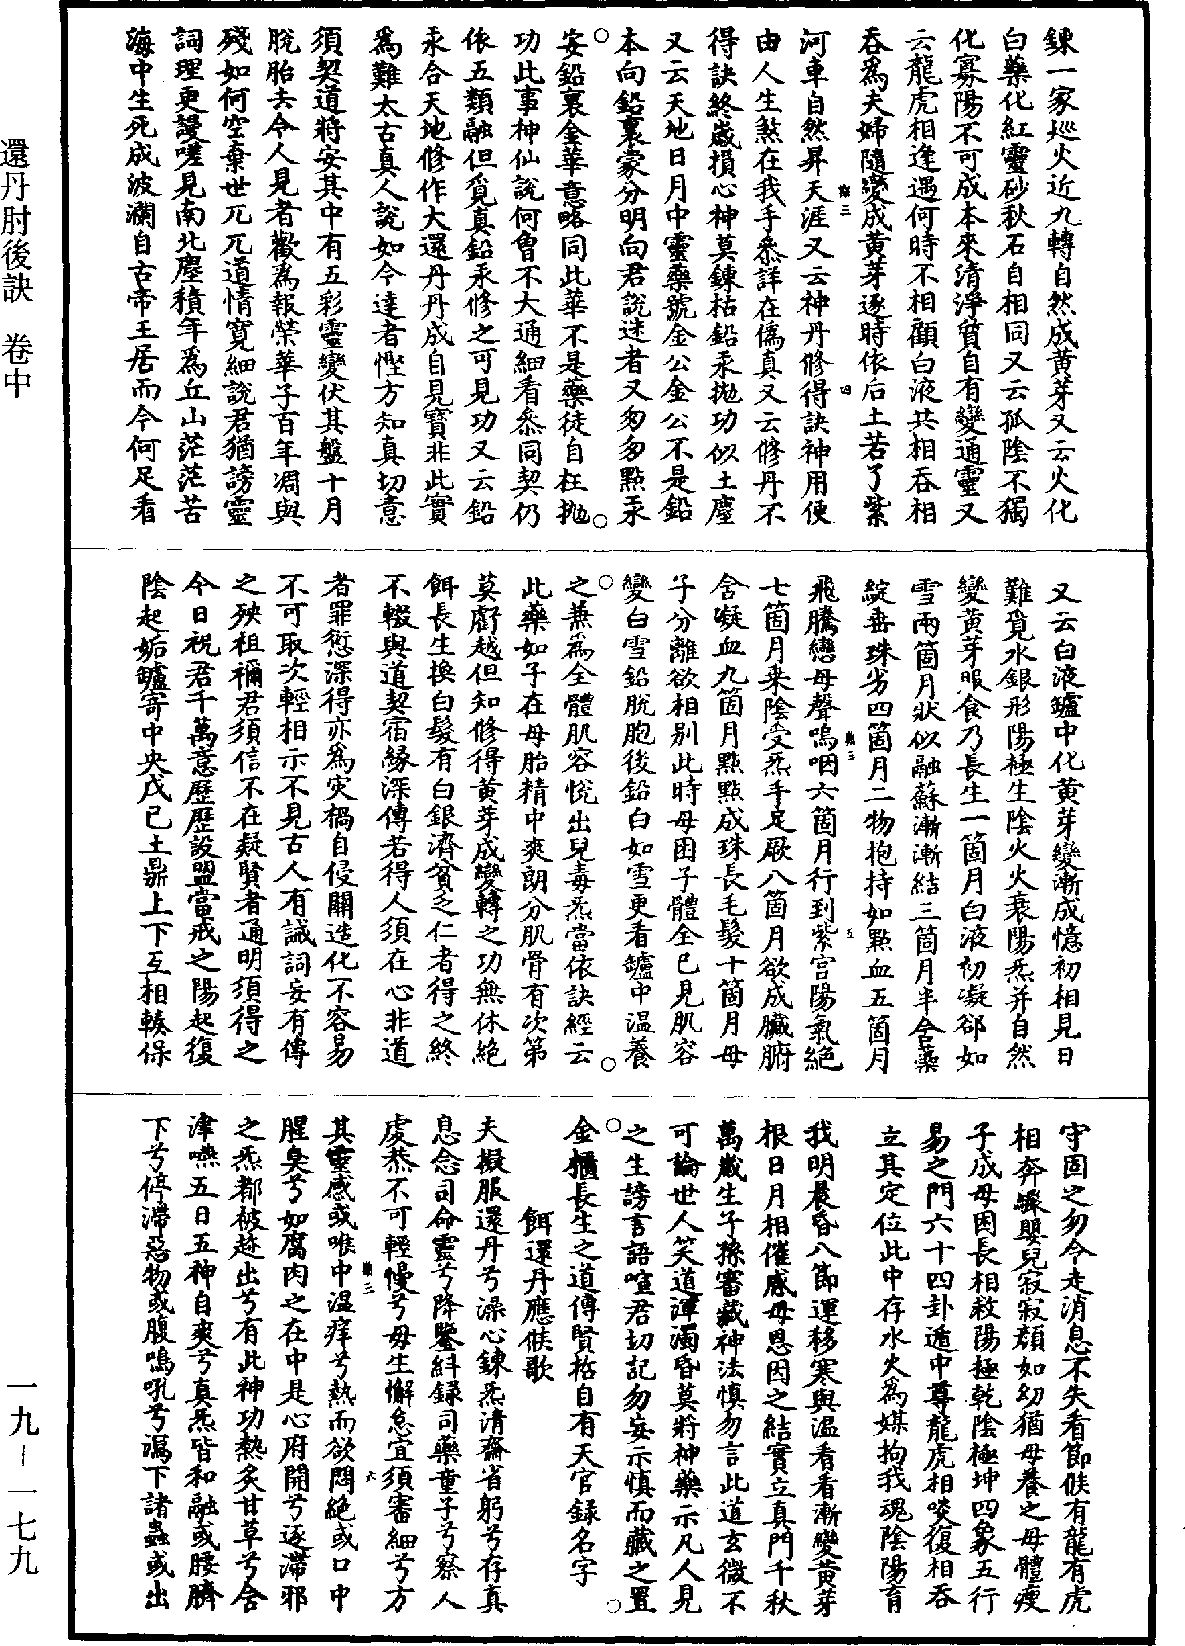 還丹肘後訣　卷中
鍊一家巡火近九轉自然成黃芽又云火化
白藥化紅靈砂秋石自相同又云孤陰不獨
化寡陽不可成本來清淨貧自有變通靈又
云龍虎相逢遇何時不相顧白液共相吞相
吞為夫婦隨變成黃芽逐時依后土苦了紫
河車自然昇天涯又云神丹修得訣神用使
由人生煞在我手叅詳在僞真又云修丹不
得訣終歲損心神莫鍊枯鉛汞拋功似土塵
又云天地日月中靈藥號金公金公不是鉛
本向鉛裏蒙分明向君說迷者又匆匆點汞
安鉛裏金華意略同此華不是藥徒自枉拋
功此事神仙說何曾不大通細看叅同契仍
依五類融但覓真鉛汞修之可見功又云鉛
汞合天地修作大還丹丹成自見寶非此實
為難太古真人說如今達者慳方知真切意
須契道將安其中有五彩靈變伏其盤十月
脫胎去令人見者歡為報榮華子百年凋與
殘如何空棄世兀兀道情寬細說君猶謗靈
詞理更謾嗟見南北塵積年為丘山茫茫苦
海中生死成波瀾自古帝王居而今何足看
又云白液鑪中化黃芽變漸成憶初相見日
難覓水銀形陽極生陰火火衰陽炁并自然
變黃芽服食乃長生一箇月白液初凝郤如
雪兩箇月狀似融蘇漸漸結三箇月半含藥
綻垂珠劣四箇月二物抱持如點血五箇月
飛騰戀母聲嗚咽六箇月行到紫宮陽氣絕
七箇月來陰受炁手足厥八箇月欲成臟腑
含凝血九箇月點點成珠長毛髮十箇月母
子分離欲相別此時母困子體全已見肌容
變白雪鉛脫胞後鉛白如雪更看鑪中温養
之兼為全體肌容悅出兒毒炁當依訣經云
此藥如子在母胎精中爽朗分肌骨有次第
莫虧越但知修得黃芽成變轉之功無休絕
餌長生換白髮有白銀濟貧乏仁者得之終
不輟與道契宿緣深傳若得人須在心非道
者罪愆深得亦為灾禍自侵關造化不容易
不可取次輕相示不見古人有誡詞妄有傳
之殃祖禰君須信不在疑賢者通明須得之
今日祝君千萬意歷歷設盟當戒之陽起復
陰起姤鑪寄中央戊己土鼎上下互相輳保
守固之勿令走消息不失看節候有龍有虎
相奔驟嬰兒寂寂顏如幼猶母養之母體瘦
子成母困長相救陽極乾陰極坤四象五行
易之門六十四卦遁中尊龍虎相啖復相吞
立其定位此中存水火為媒拘我魂陰陽育
我明晨昏八節運移寒與温看看漸變黃芽
根日月相催感母恩因之結實立真門千秋
萬歲生子孫審藏神法慎勿言此道玄微不
可論世人笑道渾濁昏莫將神藥示凡人見
之生謗言語喧君切記勿妄示慎而藏之置
金櫃長生之道傳賢哲自有天官錄名字
餌還丹應候歌
夫擬服還丹兮澡心鍊炁清齋省躬兮存真
息念司命靈兮降鑒糾錄司藥童子兮察人
虔恭不可輕慢兮毋生懈怠宜須審細兮方
其靈感或喉中温痒兮熱而欲悶絕或口中
腥臭兮如腐肉之在中是心府開兮逐滯邪
之炁都被趂出兮有此神功熱炙甘草兮含
津嚥五日五神自爽兮真炁皆和融或腰臍
下兮停滯惡物或腹鳴吼兮瀉下諸蟲或出
一九—一七九